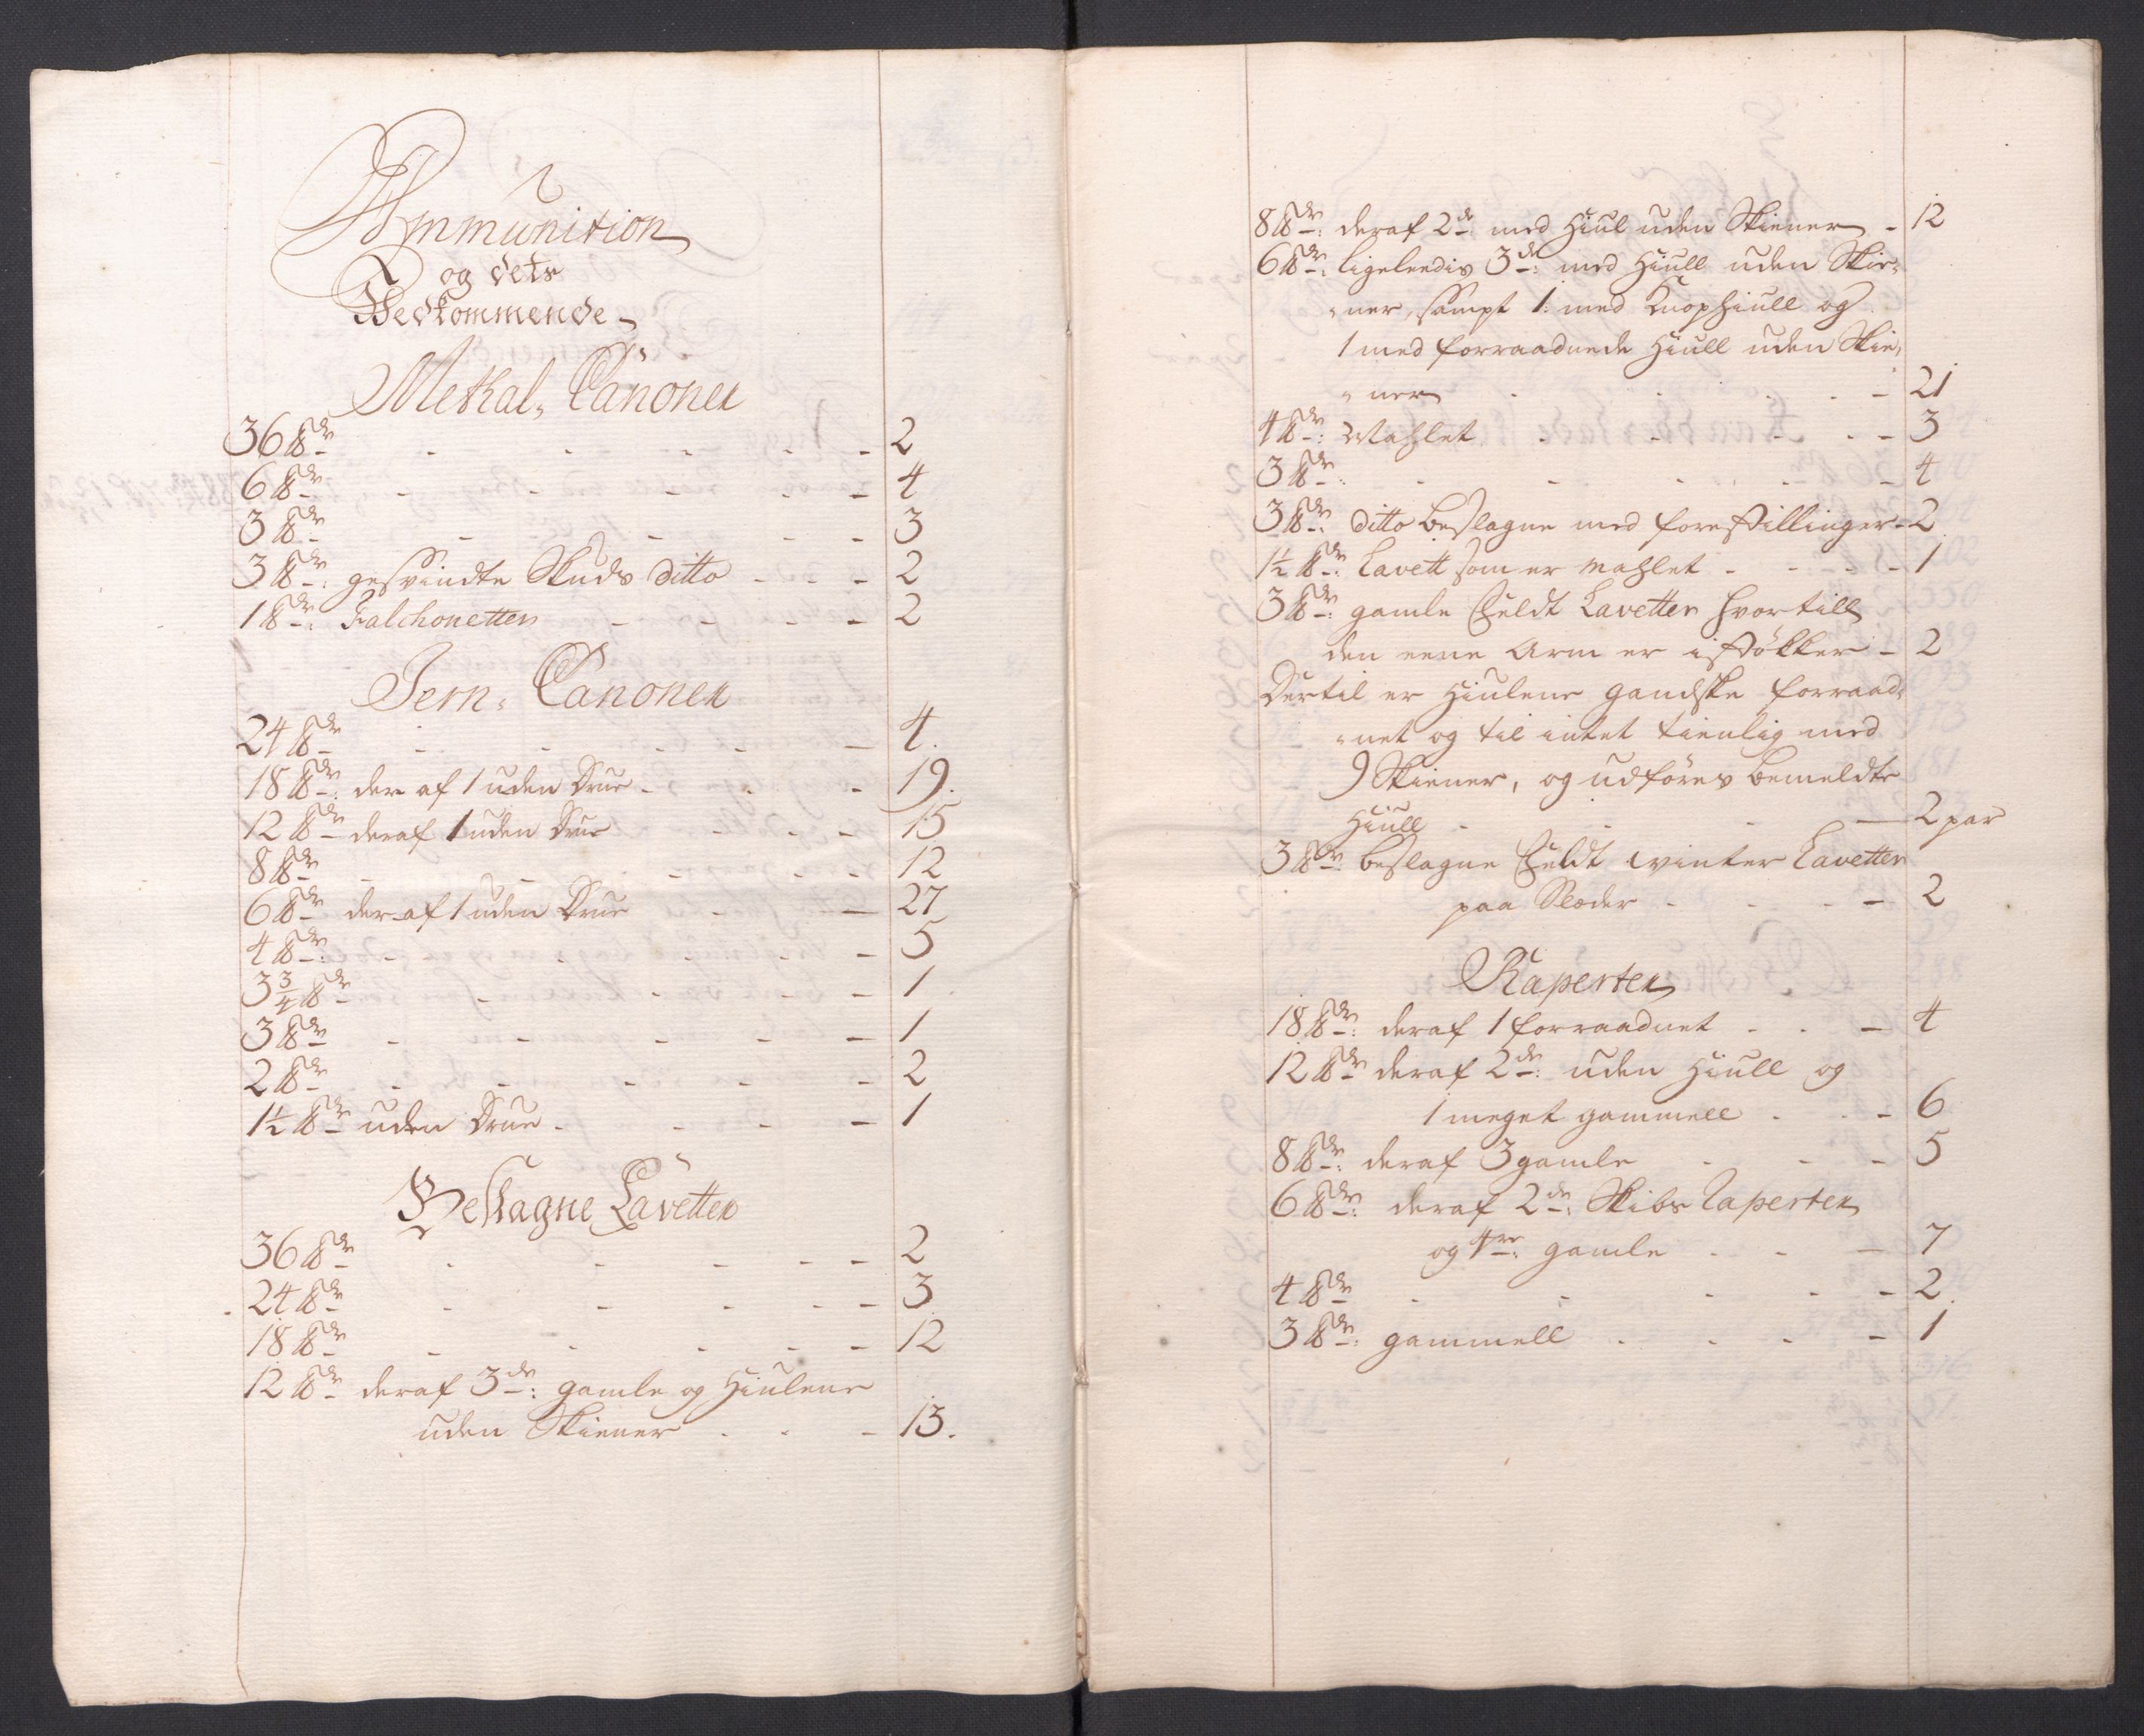 Ammunition
og dets
Vedkommende
Methal, Canoner
36 ℔dr 2
6 ℔dr 4
3 ℔dr 3
3 ℔dr: gesvindte Skuds ditto 2
1 ℔dr: Falchonetter 2
Jern, Canoner
24 ℔dr 4.
18 ℔dr: der af 1 uden Drue 19.
12 ℔dr deraf 1 uden Drue 15
8 ℔dr 12
6 ℔dr der af 1 uden Drue 27
4 ℔dr: 5
3 3/4 ℔dr 1
3 ℔dr 1
2 ℔dr 2
1½ ℔dr uden Drue 1
Beslagne Lavetter
36 ℔dr 2
24 ℔dr 3
18 ℔dr 12
12 ℔dr deraf 3de: gamle og Hiulene
uden Skiener 13.
8 ℔dr: deraf 2de med Hiul uden Skiener 12
6 ℔dr: ligeledis 3de: med Hiull uden Skie,
,ner, sampt 1: med Knophiull og
1 med forraadnede Hiull uden Skie,
,ner 21
4 ℔dr: Mahlet 3
3 ℔dr: 4
3 ℔dr: ditto beslagne med forestillinger 2
1½ ℔dr: Lavett som er Mahlet 1
3 ℔dr: gamle Feldt Lavetter hvortill
den eene Arm er istökker 2
Dertil er Hiulene gandske forraad,
,net og til intet tienlig med
9 Skiener, og udföres bemeldte
Hiull 2 par
3 ℔dr: beslagne Feldt Winter Lavetter
paa Slæder 2
Raperter
18 ℔dr: deraf 1 forraadnet 4
12 ℔dr deraf 2de: uden Hiull og
1 meget gammell 6
8 ℔dr: deraf 3 gamle 5
6 ℔dr: deraf 2de: Skibs Raperter
og 4re: gamle 7
4 ℔dr 2.
3 ℔dr: gammell 1